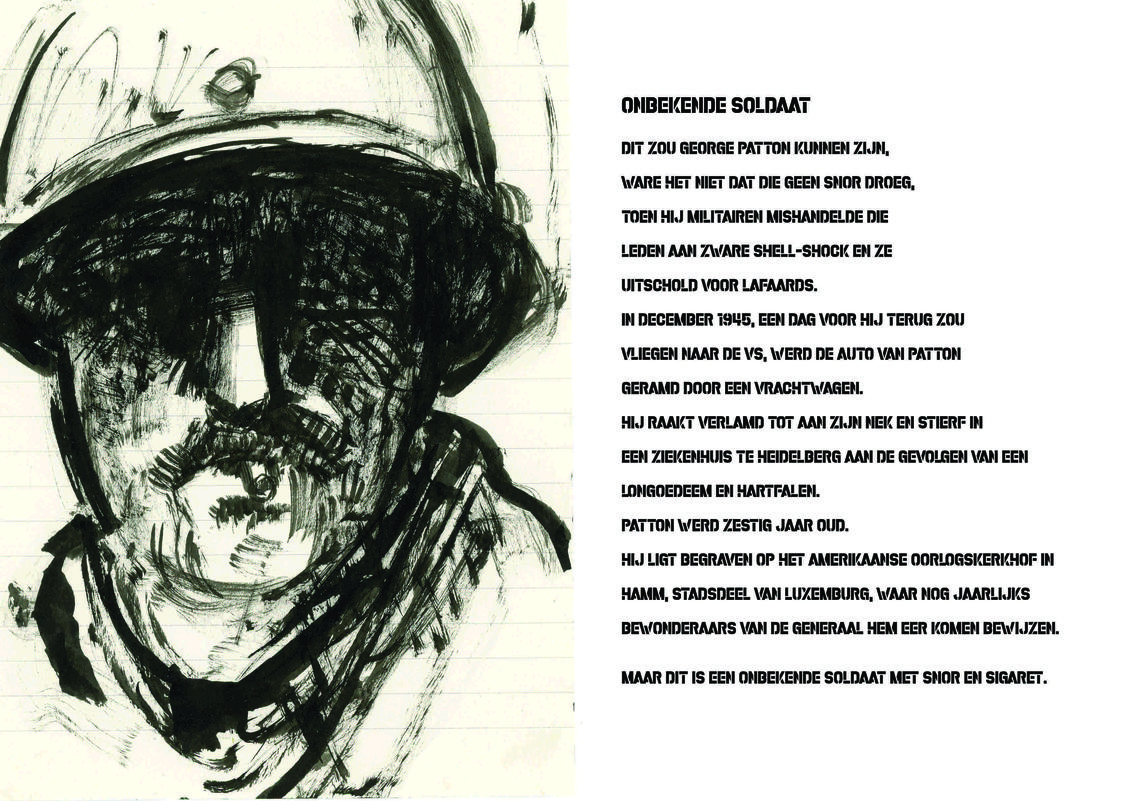 ONBEKENDE SOLDAAT
DIT ZOU GEORGE PATTON KUNNEN ZIJN,
WARE HET NIET DAT DIE GEEN SNOR DROEG,
TOEN HIJ MILITAIREN MISHANDELDE DIE
LEDEN AAN ZWARE SHELL-SHOCK EN ZE
UITSCHOLD VOOR LAFAARDS.
IN DECEMBER 1945, EEN DAG VOOR HIJ TERUG ZOU
VLIEGEN NAAR DE VS, WERD DE AUTO VAN PATTON
GERAMD DOOR EEN VRACHTWAGEN.
HIJ RAAKT VERLAMD TOT AAN ZIJN NEK EN STIERF IN
EEN ZIEKENHUIS TE HEIDELBERG AAN DE GEVOLGEN VAN EEN
LONGOEDEEM EN HARTFALEN.
PATTON WERD ZESTIG JAAR OUD.
HIJ LIGT BEGRAVEN OP HET AMERIKAANSE OORLOGSKERKHOF IN
HAMM, STADSDEEL VAN LUXEMBURG, WAAR NOG JAARLIJKS
BEWONDERAARS VAN DE GENERAAL HEM EER KOMEN BEWIJZEN.
MAAR DIT IS EEN ONBEKENDE SOLDAAT MET SNOR EN SIGARET.